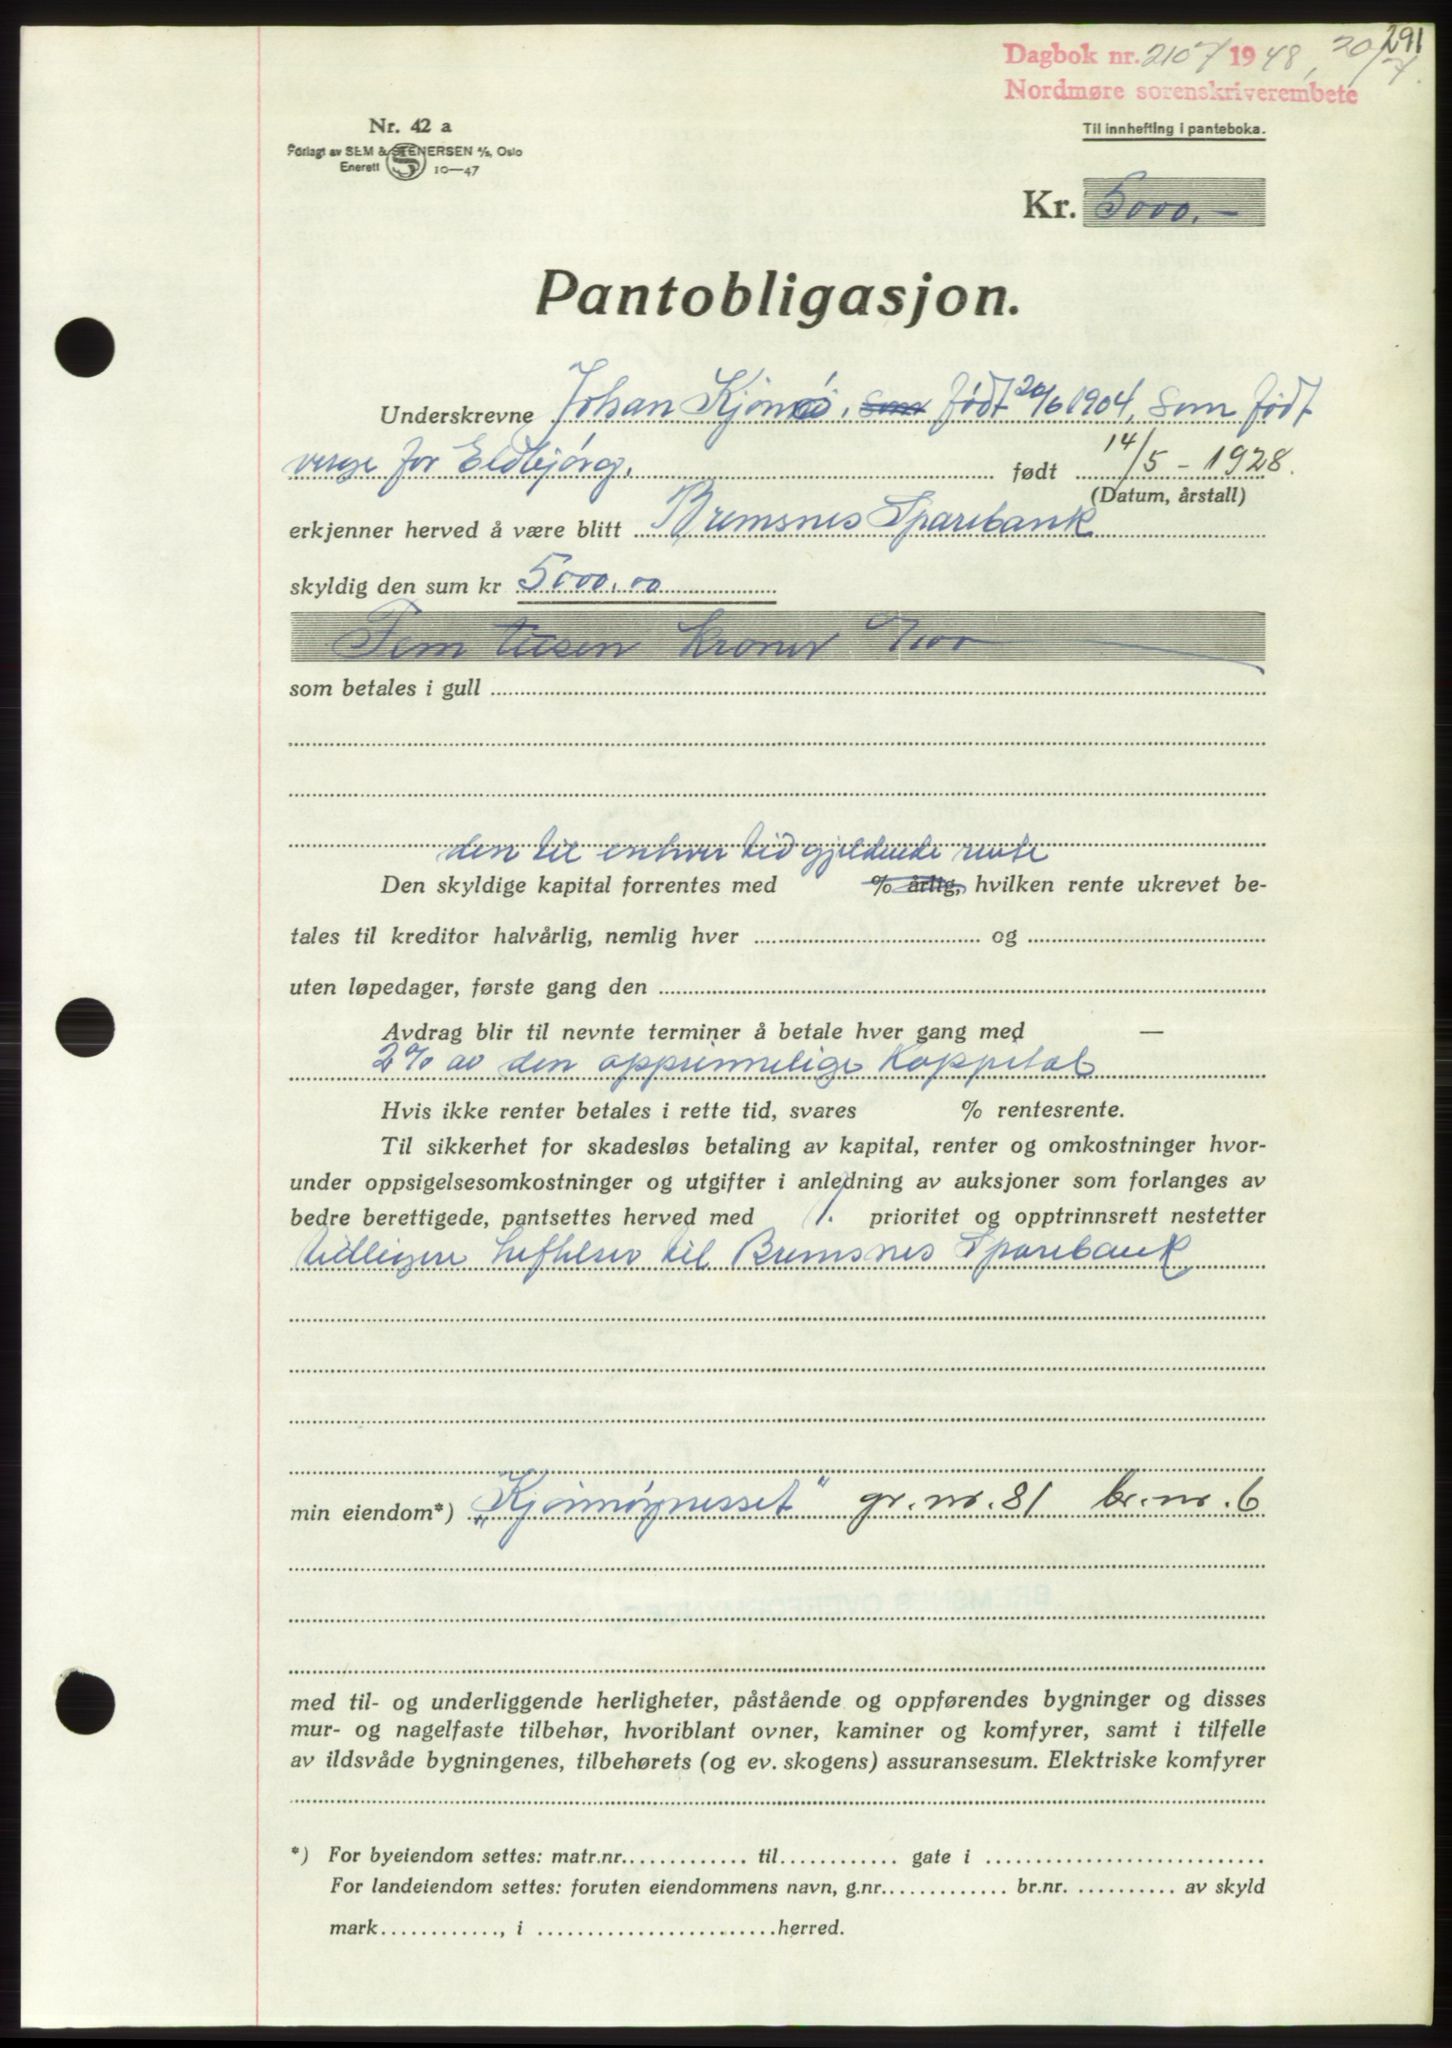 291
Dagbok nr. 2107 1948, 20/7.
Nordmøre sorenskriverembete
Nr. 42 a
Til innhefting i panteboka.
Forlagt av SEM & STENERSEN A/S, Oslo
Enerett S 10—47
Kr. 5000.-
Pantobligasjon.
Underskrevne Johan Kjønnø, som født 20/6 1904, som født
verge for Eldbjørg, født 14/5 - 1928.
(Datum, årstall)
erkjenner herved å være blitt Bremsnes Sparebank
skyldig den sum kr 5000.00
Fem tusen kroner 0/100
som betales i gull
den til enhver tid gjeldende rente
Den skyldige kapital forrentes med % årlig, hvilken rente ukrevet be-
tales til kreditor halvårlig, nemlig hver og
uten løpedager, første gang den
Avdrag blir til nevnte terminer å betale hver gang med —
2% av den opprinnelige Kappital
Hvis ikke renter betales i rette tid, svares % rentesrente.
Til sikkerhet for skadesløs betaling av kapital, renter og omkostninger hvor-
under oppsigelsesomkostninger og utgifter i anledning av auksjoner som forlanges av
bedre berettigede, pantsettes herved med 1. prioritet og opptrinnsrett nestetter
tidligere heftelser til Bremsnes Sparebank
min eiendom*) „Kjønnøynesset" gr. nr. 81 br. nr. 6
med til- og underliggende herligheter, påstående og oppførendes bygninger og disses
mur- og nagelfaste tilbehør, hvoriblant ovner, kaminer og komfyrer, samt i tilfelle
av ildsvåde bygningenes, tilbehørets (og ev. skogens) assuransesum. Elektriske komfyrer
*) For byeiendom settes: matr.nr. til gate i
For landeiendom settes: foruten eiendommens navn, g.nr. br.nr. av skyld
mark , i herred.